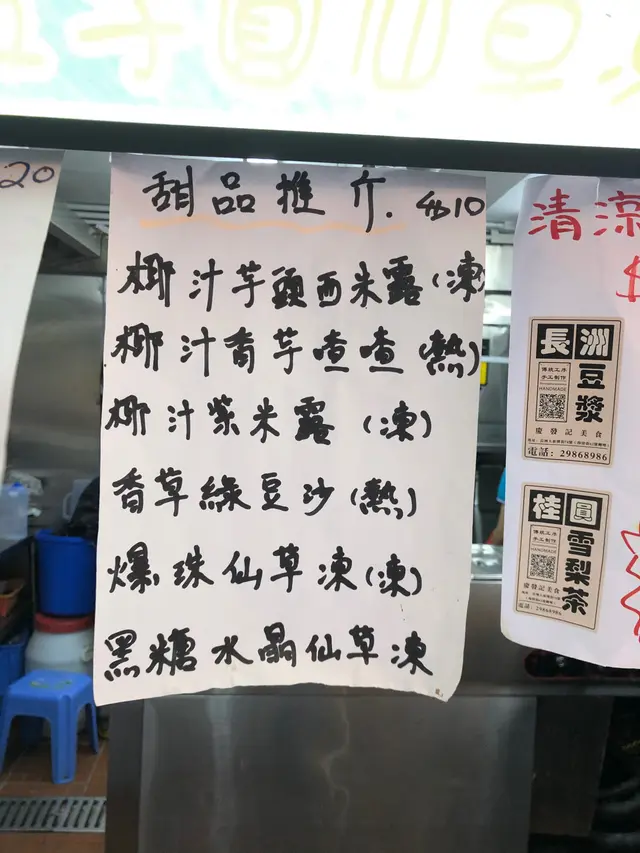 芋圓仙
20
甜品推介. 10
椰汁芋頭西米露(凍)
椰汁香芋喳喳(熱)
椰汁紫米露(凍)
香草綠豆沙(熱)
爆珠仙草凍(凍)
黑糖水晶仙草凍
清涼
$
長洲
豆漿
傳統工序
手工制作
HANDMADE
慶發記美食
電話: 29868986
桂圓
雪梨茶
傳統工序
手工制作
HANDMADE
慶發記美食
電話: 29868986